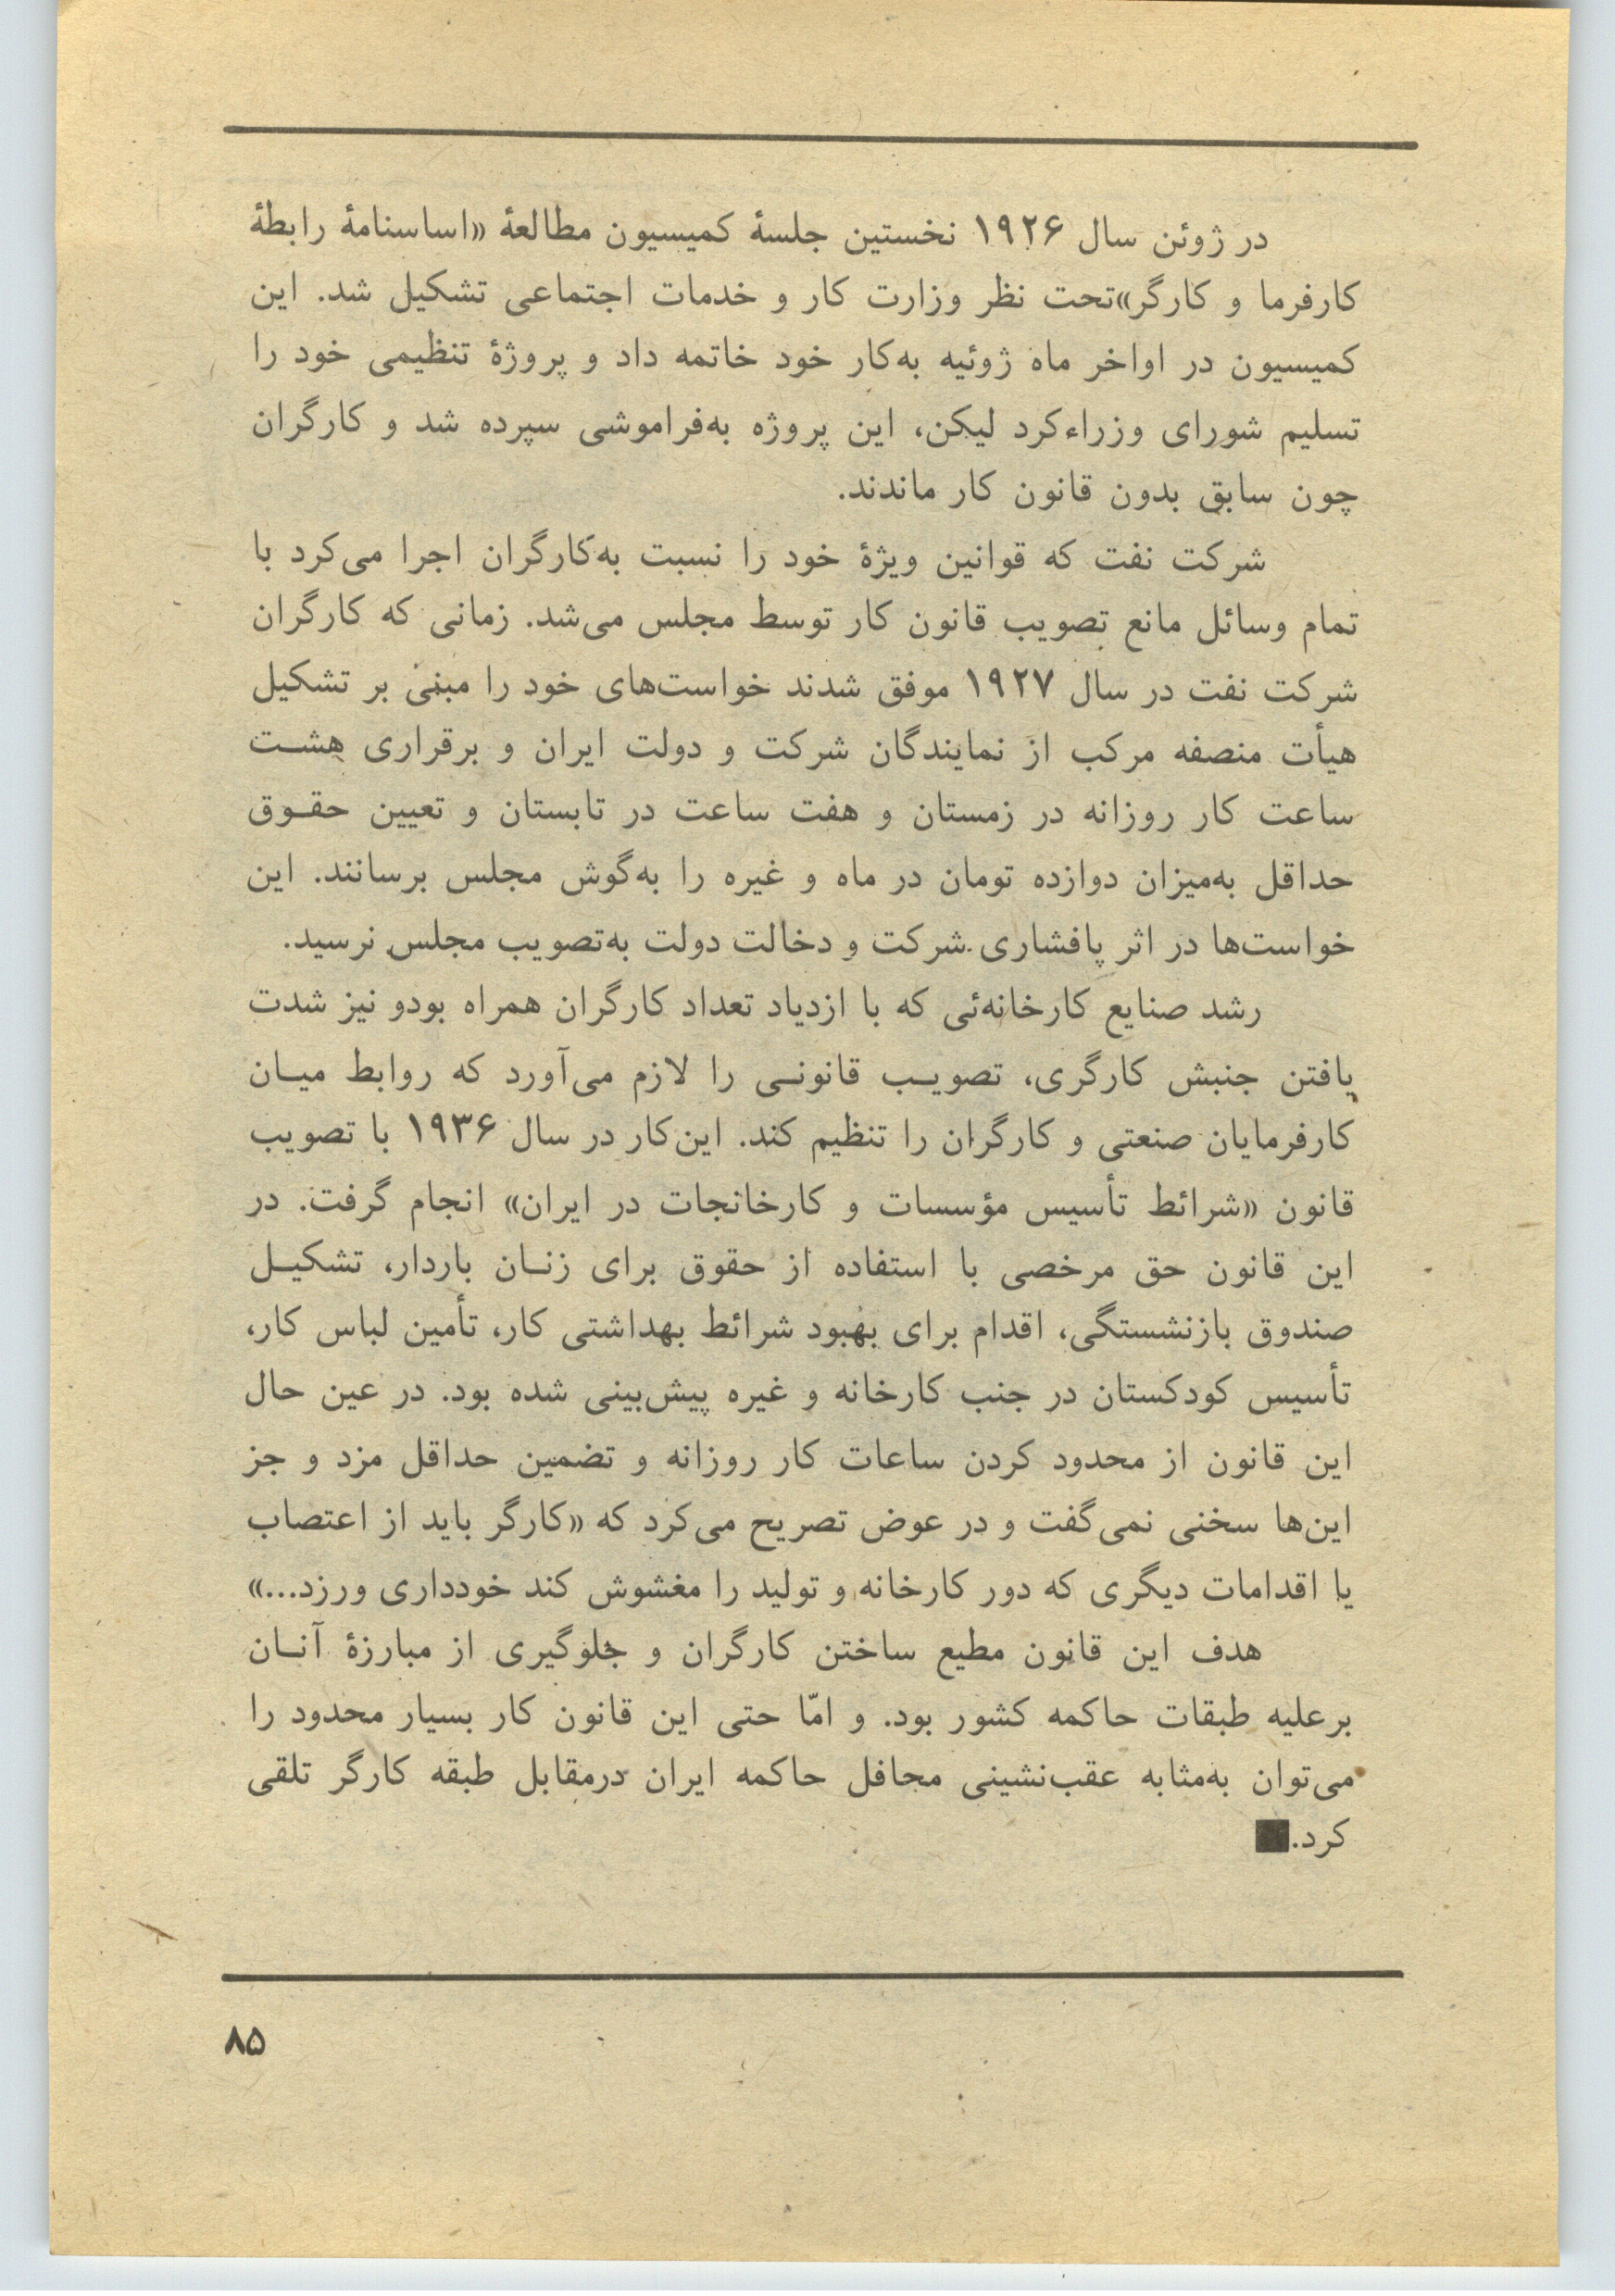 در ژوئن سال ۱۹۲۶ نخستین جلسهٔ کمیسیون مطالعهٔ «اساسنامهٔ رابطهٔ
کارفرما و کارگر»تحت نظر وزارت کار و خدمات اجتماعی تشکیل شد. این
کمیسیون در اواخر ماه ژوئیه به‌کار خود خاتمه داد و پروژهٔ تنظیمی خود را
تسلیم شورای وزراءکرد لیکن، این پروژه به‌فراموشی سپرده شد و کارگران
چون سابق بدون قانون کار ماندند.
شرکت نفت که قوانین ویژهٔ خود را نسبت به‌کارگران اجرا می‌کرد با
تمام وسائل مانع تصویب قانون کار توسط مجلس می‌شد. زمانی که کارگران
شرکت نفت در سال ۱۹۲۷ موفق شدند خواست‌های خود را مبنی بر تشکیل
هیأت منصفه مرکب از نمایندگان شرکت و دولت ایران و برقراری هشت
ساعت کار روزانه در زمستان و هفت ساعت در تابستان و تعیین حقوق
حداقل به‌میزان دوازده تومان در ماه و غیره را به‌گوش مجلس برسانند. این
خواست‌ها در اثر پافشاری شرکت و دخالت دولت به‌تصویب مجلس نرسید.
رشد صنایع کارخانه‌ئی که با ازدیاد تعداد کارگران همراه بودو نیز شدت
یافتن جنبش کارگری، تصویب قانونی را لازم می‌آورد که روابط میان
کارفرمایان صنعتی و کارگران را تنظیم کند. این‌کار در سال ۱۹۳۶ با تصویب
قانون «شرائط تأسیس مؤسسات و کارخانجات در ایران» انجام گرفت. در
این قانون حق مرخصی با استفاده از حقوق برای زنان باردار، تشکیل
صندوق بازنشستگی، اقدام برای بهبود شرائط بهداشتی کار، تأمین لباس کار،
تأسیس کودکستان در جنب کارخانه و غیره پیش‌بینی شده بود. در عین حال
این قانون از محدود کردن ساعات کار روزانه و تضمین حداقل مزد و جز
این‌ها سخنی نمی‌گفت و در عوض تصریح می‌کرد که «کارگر باید از اعتصاب
یا اقدامات دیگری که دور کارخانه و تولید را مغشوش کند خودداری ورزد...»
هدف این قانون مطیع ساختن کارگران و جلوگیری از مبارزهٔ آنان
برعلیه طبقات حاکمه کشور بود. و امّا حتی این قانون کار بسیار محدود را
می‌توان به‌مثابه عقب‌نشینی محافل حاکمه ایران درمقابل طبقه کارگر تلقی
کرد.■
۸۵